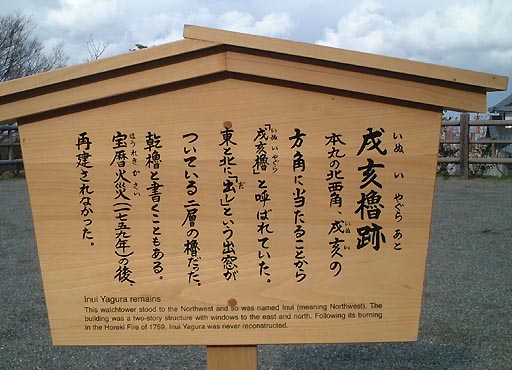 戌亥櫓跡
いぬ い やぐら あと
本丸の北西角、戌亥の
いぬ い
方角に当たることから
「戌亥櫓」と呼ばれていた。
いぬ い やぐら
東と北に「出し」という出窓が
だ
ついている二層の櫓だった。
乾櫓と書くこともある。
宝暦火災(一七五九年)の後、
ほうれき かさい
再建されなかった。
Inui Yagura remains
This watchtower stood to the Northwest and so was named Inui (meaning Northwest). The
building was a two-story structure with windows to the east and north. Following its burning
in the Horeki Fire of 1759, Inui Yagura was never reconstructed.